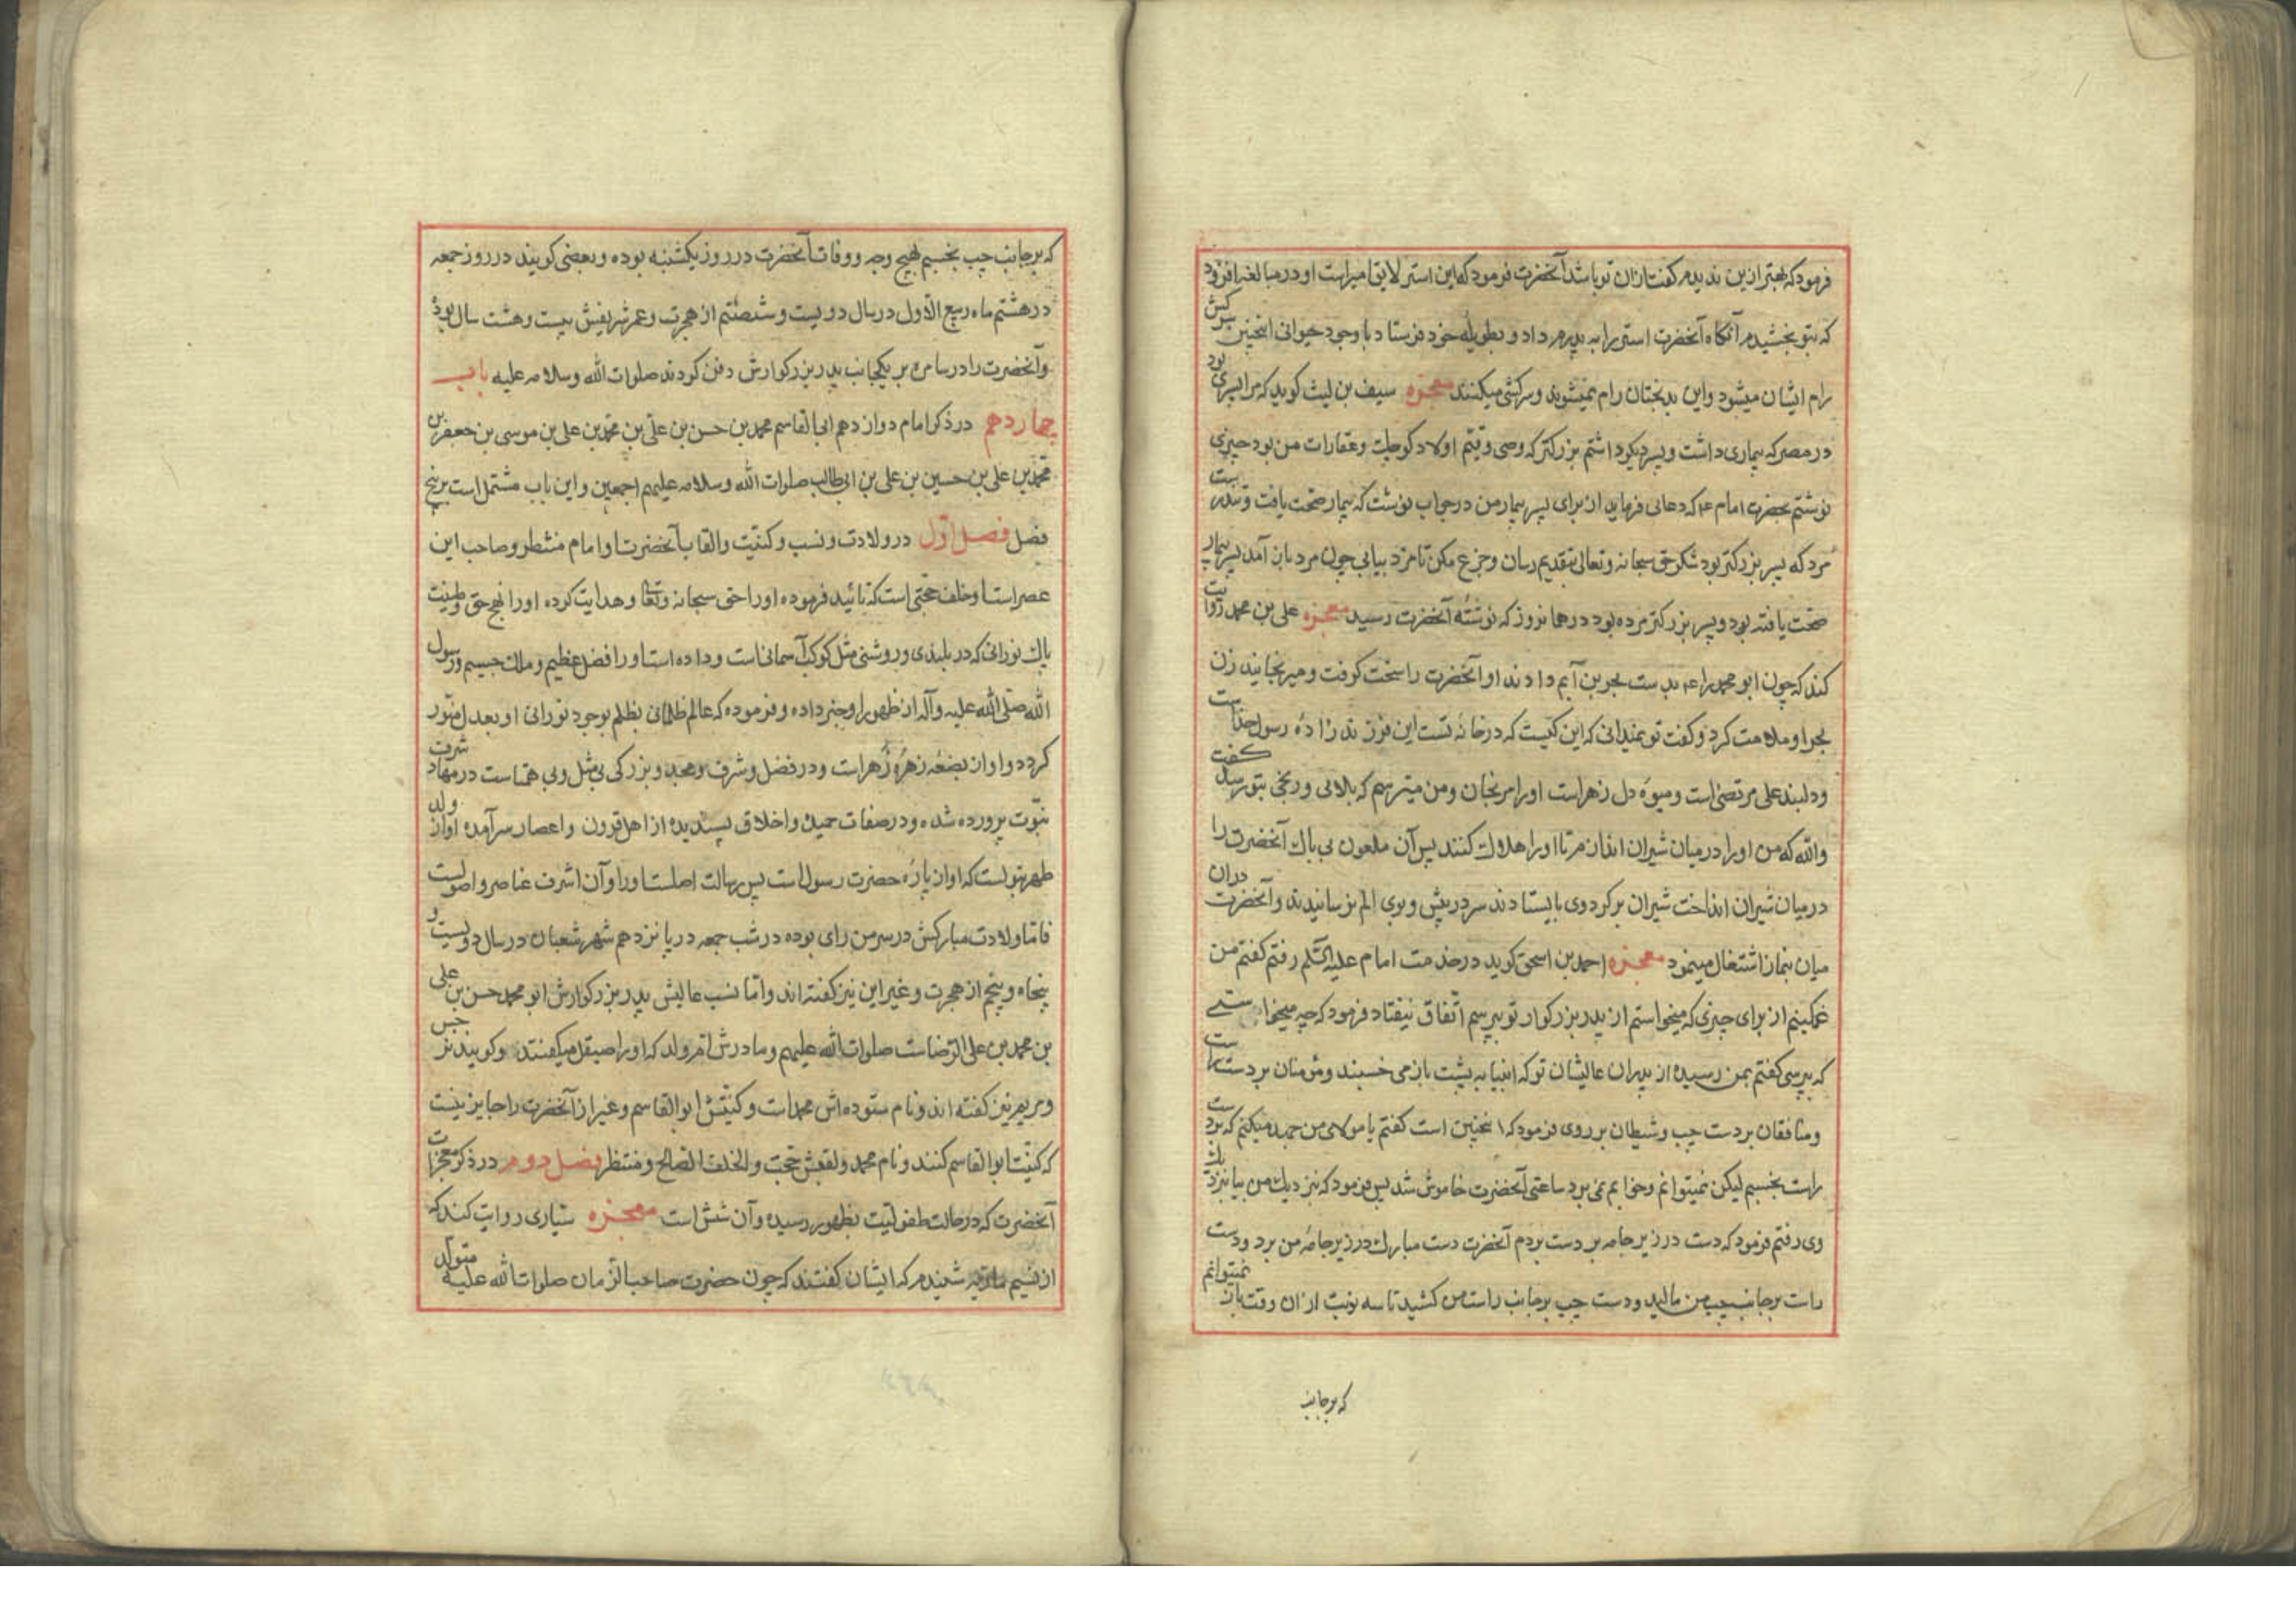 فرمود که بهتر ازین ندیدم گفت ازان تو باشد آنحضرت فرمود که این استر لایق امیر است او در مبالغه افزود
که بتو بخشیدم آنگاه آنحضرت استر را به پدرم داد و بطویله خود فرستاد با وجود حیوانی اینچنین سرکش
رام ایشان میشود و این بدبختان رام نمیشوند و سرکشی میکنند معجزه سیف بن لیث کوید که مرا پسری بود
در مصر که بیماری داشت و پسر دیگر داشتم بزرکتر که وصی و قیّم اولاد کوچک و عقارات من بود چیزی
نوشتم بحضرت امام ع که دعائی فرماید از برای پسر بیمار من در جواب نوشت که بیمار صحت یافت
مرد که پسر بزرکتر بود شکر حق سبحانه و تعالی بتقدیم رسان و جزع مکن تا مزد بیابی چون مرد بازآمد پسر بیمار
صحت یافته بود و پسر بزرکتر مرده بود در همانروز که نوشته آنحضرت رسید معجزه علی بن محمد روایت
کند که چون ابو محمد را ع بدست دادند او آنحضرت را سخت کرفت و میرنجانید زن
او ملامت کرد و کفت تو نمیدانی که این کیست که در خانه تست این فرزند زاده رسول خداست
و دلبند علی مرتضی است و میوه دل زهراست او را مرنجان و من میترسم که بلائی و رنجی بتو رسد کفت
والله که من او را در میان شیران اندازم تا او را هلاک کنند پس آن ملعون بی باک آنحضرت را
در میان شیران انداخت شیران بر کرد وی بایستادند سر در پیش و بوی الم نرسانیدند و آنحضرت دران
میان بنماز اشتغال مینمود معجزه احمد بن اسحق کوید در خدمت امام علیه السّلم رفتم کفتم من
غمکینم از برای چیزی که میخواستم از پدر بزرکوار تو بپرسم اتّفاق نیفتاد فرمود که چه میخواستی
که بپرسی کفتم بمن رسیده از پدران عالیشان تو که انبیا به پشت باز می خسبند و مؤمنان بر دست راست
و منافقان بر دست چپ و شیطان بر روی فرمود که اینچنین است کفتم یا مولای من جهد میکنم که بر دست
راست بخسبم لیکن نمیتوانم و خوابم نمی برد ساعتی آنحضرت خاموش شد پس فرمود که نزدیک من بیا نزدیک
وی رفتم فرمود که دست در زیر جامه بر دست بردم آنحضرت دست مبارک در زیر جامه من برد و دست
راست بر جانب چپ من مالید و دست چپ بر جانب راست من کشید تا سه نوبت ازان وقت باز نمیتوانم
که بر جانب
که بر جانب چپ بخسبم بهیچ وجه و وفات آنحضرت در روز یکشنبه بوده و بعضی کویند در روز جمعه
در هشتم ماه ربیع الاوّل در سال دویست و شصتم از هجرت و عمر شریفش بیست و هشت سال بود
و آنحضرت را در سامره بر یکجانب پدر بزرکوارش دفن کردند صلوات الله وسلامه علیه باب
چهاردهم در ذکر امام دوازدهم ابی القاسم محمد بن حسن بن علی بن محمد بن علی بن موسی بن جعفر بن
محمد بن علی بن حسین بن علی بن ابی طالب صلوات الله وسلامه علیهم اجمعین و این باب مشتمل است بر پنج
فصل فصل اوّل در ولادت و نسب و کنیّت و القاب آنحضرت و امام منتظر و صاحب این
عصر است و خلف حجّتی است که تائید فرموده او را حق سبحانه وتعالی و هدایت کرده او را نهج حق و طینت
پاک نورانی که در بلندی و روشنی مثل کوکب آسمانی است و داده است او را فضل عظیم و ملک جسیم و رسول
الله صلّی الله علیه وآله از ظهور او خبر داده و فرموده که عالم ظلمانی بظلم بوجود نورانی او بعدل منوّر
کردد و او از بضعه زهره زهراست و در فضل و شرف و مجد و بزرکی بی مثل و بی همتاست در مهاد شرف
نبّوت پرورده شده و در صفات حمیده و اخلاق پسندیده از اهل قرون و اعصار سرآمده او از ولد
طهر بتولست که او از پاره حضرت رسول است پس رسالت اصلست او را و آن اشرف عناصر و اصولست
فامّا ولادت مبارکش در سرمن رای بوده در شب جمعه در پانزدهم شهر شعبان در سال دویست و
پنجاه و پنجم از هجرت و غیر این نیز کفته اند و امّا نسب عالیش پدر بزرکوارش ابو محمد حسن بن علی
بن محمد بن علی الرّضاست صلوات الله علیهم و مادرش امّ ولد که او را صیقل میکفتند و کویند نرجس
و مریم نیز کفته اند و نام ستوده اش محمد است و کنیّتش ابو القاسم و غیر از آنحضرت را جایز نیست
که کنیّت ابوالقاسم کنند و نام محمد و لقبش حجّت و الخلف الصّالح و منتظر فصل دوم در ذکر معجزات
آنحضرت که در حالت طفولیّت بظهور رسیده و آن شش است معجزه سیّاری روایت کند که
از نسیم و ماریه شنیدم که ایشان کفتند که چون حضرت صاحب الزّمان صلوات الله علیه متولّد